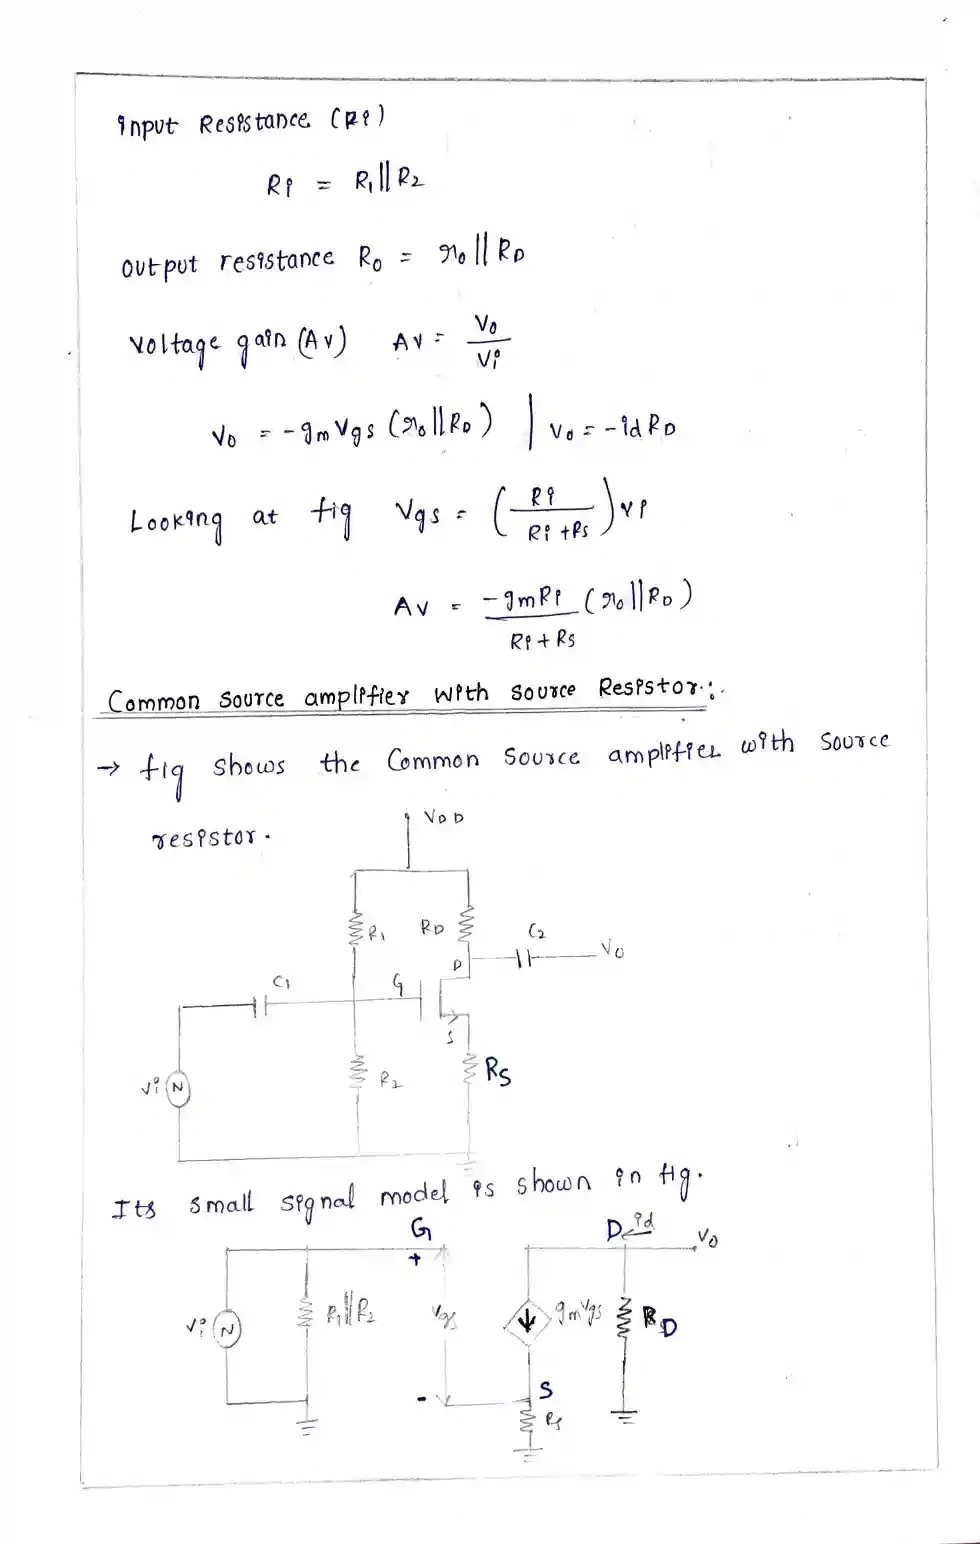 Input Resistance (Ri)
Ri = R1 || R2
output resistance Ro = ro || RD
voltage gain (Av) Av = Vo / Vi
Vo = -gm Vgs (ro || RD) | Vo = -id RD
Looking at fig Vgs = (Ri / Ri + Rs) vi
Av = -gm Ri (ro || RD) / Ri + Rs
Common Source amplifier with source Resistor:.
→ fig shows the Common Source amplifier with Source
resistor.
VDD
R1 RD C2
D Vo
C1 G
S
Vi N R2 RS
Its small signal model is shown in fig.
G D id Vo
+
Vi N R1 || R2 Vgs gm Vgs RD
- S
Rs